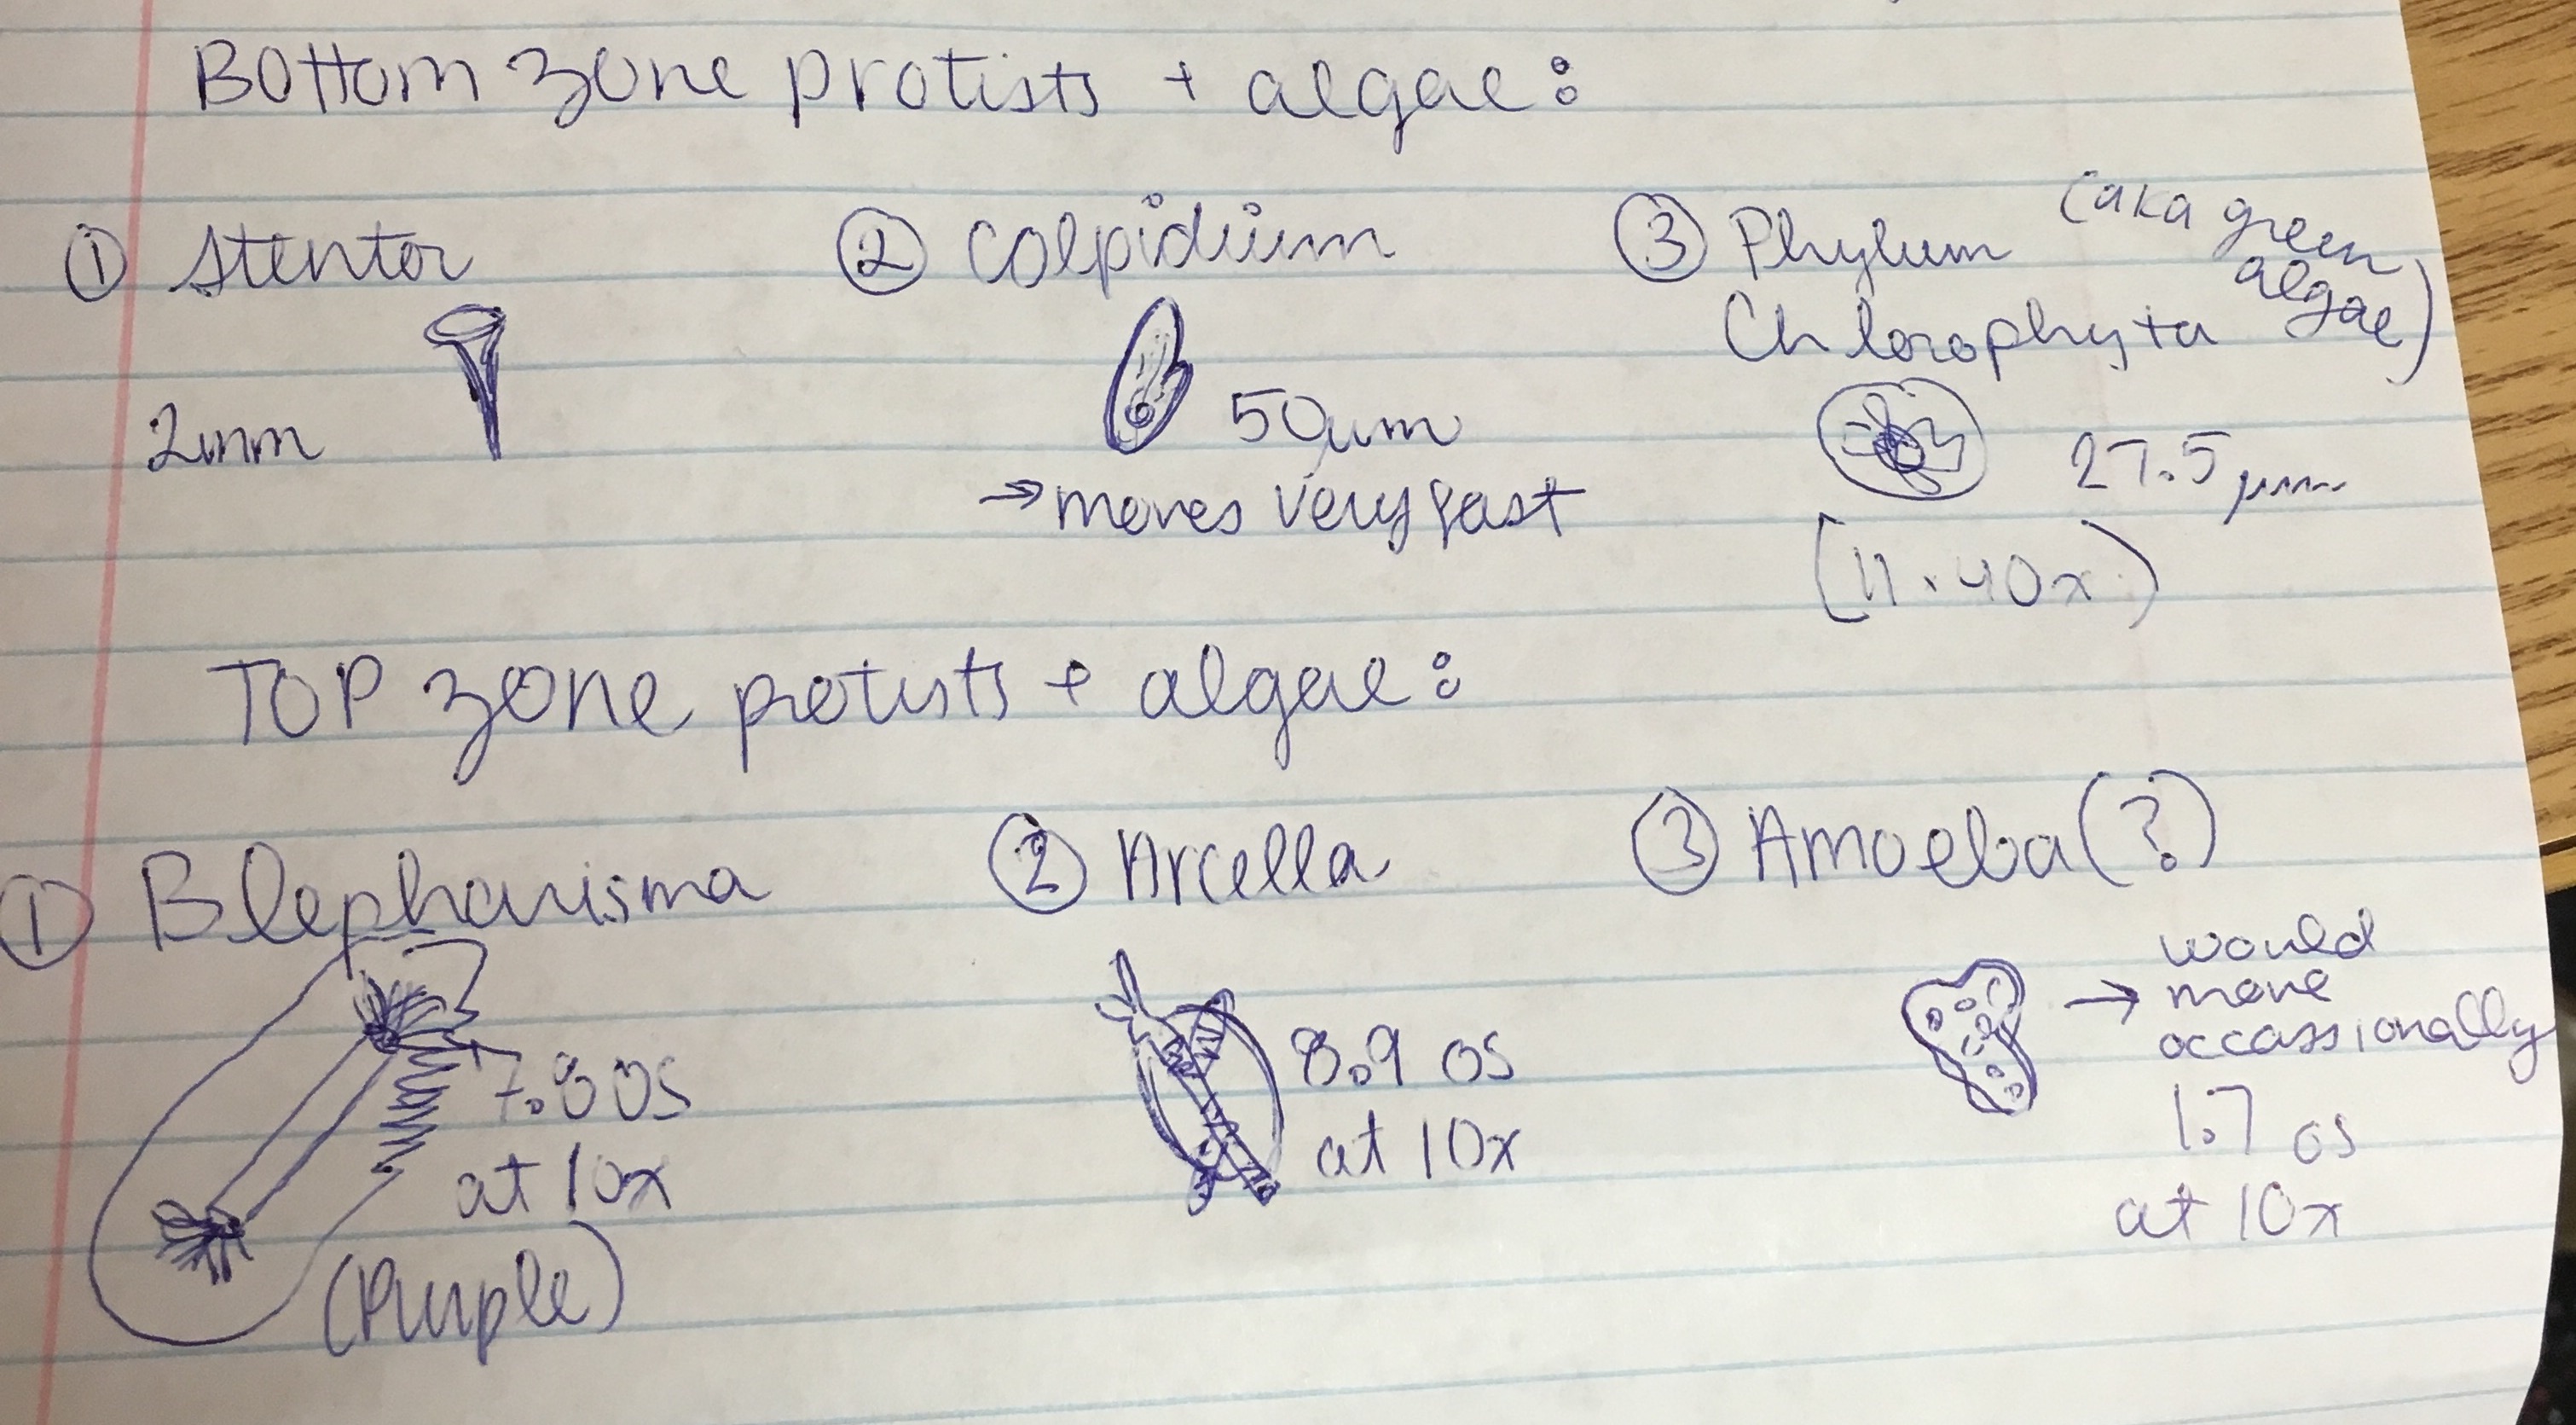 Bottom zone protists + algae:
① Stentor
2mm
② Colpidium
50µm
→ moves very fast
③ Phylum (aka green
algae)
Chlorophyta
27.5 µm
(11 · 40x)
TOP zone protists + algae:
① Blepharisma
7.8 OS
at 10x
(Purple)
② Arcella
8.9 OS
at 10x
③ Amoeba (?)
→ would
move
occassionally
1.7 OS
at 10x